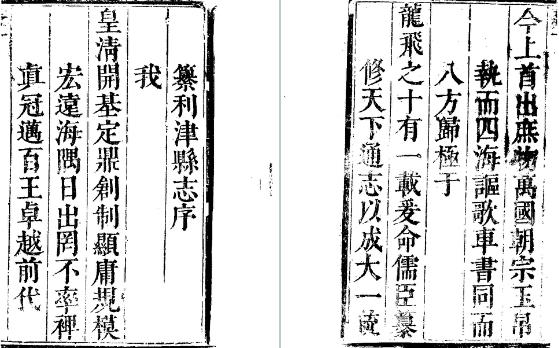 纂利津縣志序
我
皇清開基定鼎創制顯庸規模
宏遠海隅日出罔不率禆
真冠邁百王卓越前代
今上首出庶物萬國朝宗玉帛
執而四海謳歌車書同而
八方歸極于
龍飛之十有一載爰命儒臣纂
修天下通志以成大一統